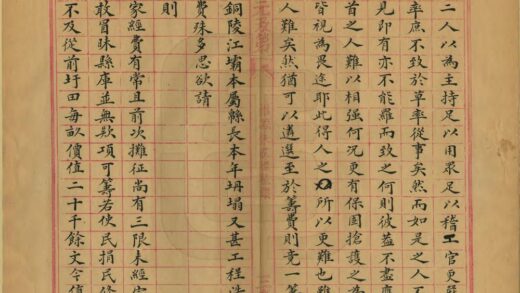 二人以為主持足以用眾足以稽工官更嚴
率庶不致於草率從事矣然而如是之人不
見即有亦不能羅而致之何則彼蓋不盡
首之人難以相強何況更有保固搶護之
皆視為畏途耶此得人之所以更難也雖
人難矣然猶可以遴選至於籌費則竟一籌
銅陵江壩本屬縣長本年坍塌又甚工程浩
費殊多思欲請
則
家經費有常且前次攤征尚有三限未經
敢冒昧縣庫並無欵項可籌若使民捐民修
不及從前圩田每畝價值二十千餘文今值